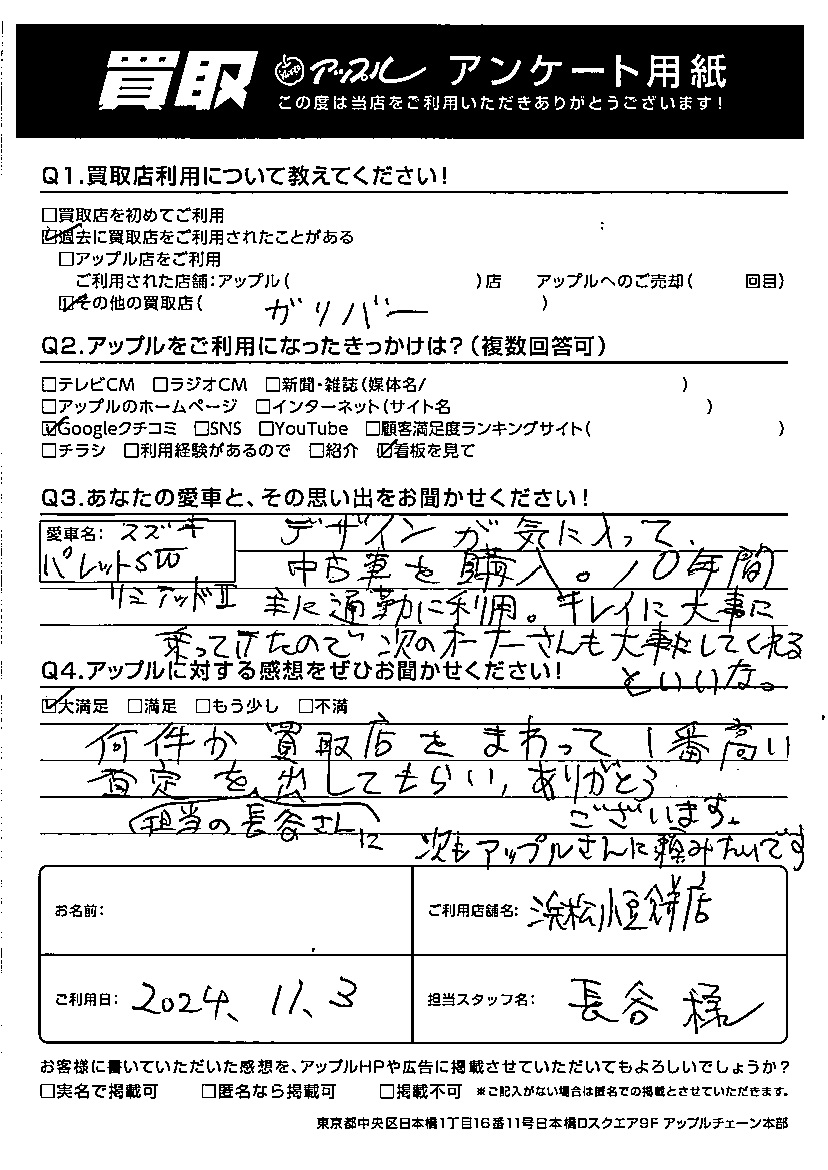 買取 アップル アンケート用紙
この度は当店をご利用いただきありがとうございます!
Q1.買取店利用について教えてください!
□買取店を初めてご利用
☑過去に買取店をご利用されたことがある
□アップル店をご利用
ご利用された店舗:アップル( )店 アップルへのご売却( 回目)
☑その他の買取店( ガリバー )
Q2.アップルをご利用になったきっかけは?(複数回答可)
□テレビCM □ラジオCM □新聞・雑誌(媒体名/ )
□アップルのホームページ □インターネット(サイト名 )
☑Googleクチコミ □SNS □YouTube □顧客満足度ランキングサイト( )
□チラシ □利用経験があるので □紹介 ☑看板を見て
Q3.あなたの愛車と、その思い出をお聞かせください!
愛車名: スズキ
パレットSW
リミテッドII
デザインが気に入って、
中古車を購入。10年間
主に通勤に利用。キレイに大事に
乗ってきたので次のオーナーさんも大事にしてくれる
といいな。
Q4.アップルに対する感想をぜひお聞かせください!
☑大満足 □満足 □もう少し □不満
何件か買取店をまわって1番高い
査定を出してもらい、ありがとう
担当の長谷さんに
ございます。
次もアップルさんに頼みたいです
お名前:
ご利用店舗名: 浜松小豆餅店
ご利用日: 2024、11、3
担当スタッフ名: 長谷様
お客様に書いていただいた感想を、アップルHPや広告に掲載させていただいてもよろしいでしょうか?
□実名で掲載可 □匿名なら掲載可 □掲載不可 ※ご記入がない場合は匿名での掲載とさせていただきます。
東京都中央区日本橋1丁目16番11号日本橋Dスクエア9F アップルチェーン本部